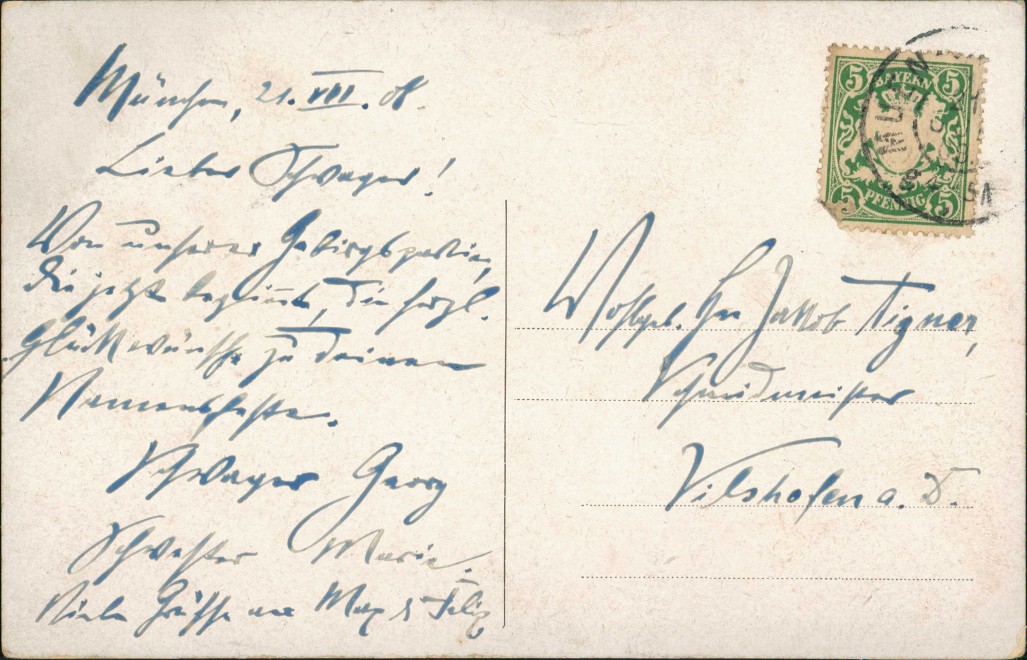 München, 21. VII. 08.
Lieber Schwager!
Von unserer Gebirgspartie,
die jetzt beginnt, die herzl.
Glückwünsche zu Deinem
Namensfeste.
Schwager Georg
Schwester Marie.
Viele Grüsse an Max & Felix
5 BAYERN 5
5 PFENNIG 5
Wohlgeb. Hr Jakob Aigner,
Schmidmeister
Vilshofen a. D.